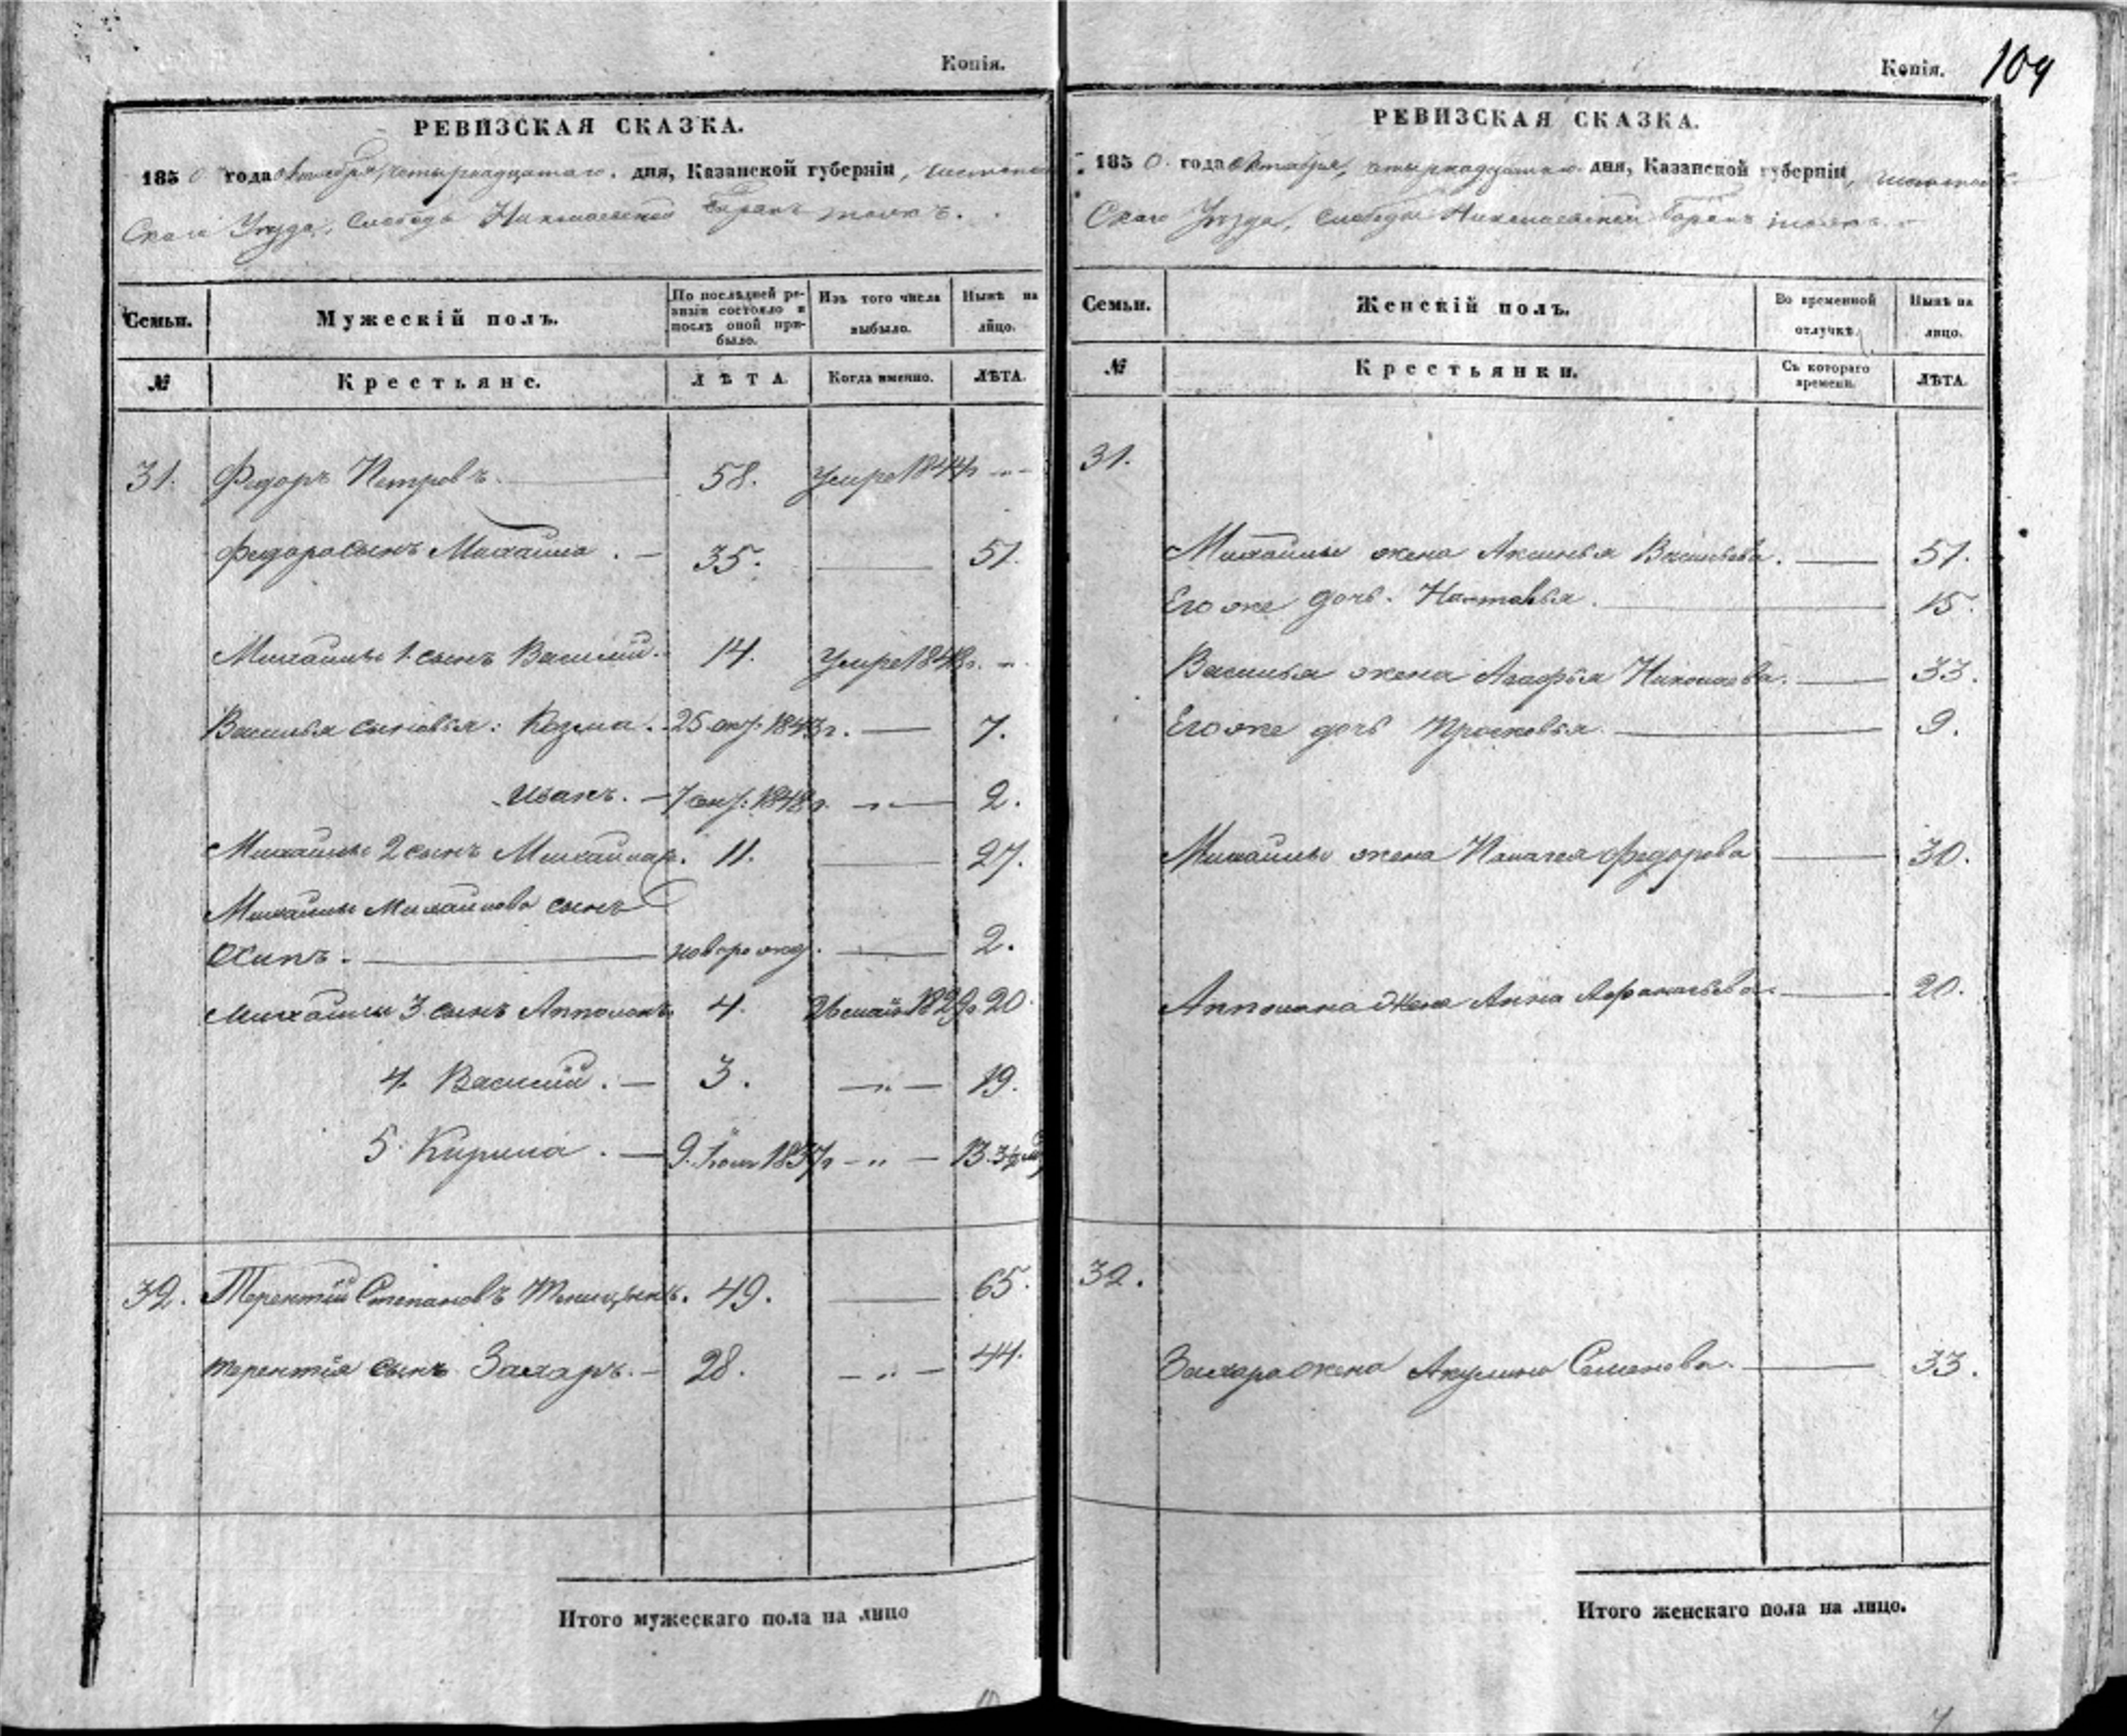 Копія.
РЕВИЗСКАЯ СКАЗКА.
1850 года октября, четырнадцатаго дня, Казанской губерніи,
скаго Уѣзда, слободы Николаевской Баранъ тожъ.
Семьи. Мужескій полъ. По послѣдней ревизіи состояло и послѣ оной прибыло. Изъ того числа выбыло. Нынѣ на лицо.
№ Крестьяне. ЛѢТА. Когда именно. ЛѢТА.
31. Федоръ Петровъ. 58. Умре 1844г - " -
Федора сынъ Михаила. 35. 51.
Михайлы 1. сынъ Василій. 14. Умре 1848г. - " -
Василья сыновья: Козма. 25 окт: 1843г. 7.
Иванъ. 7 окт: 1848г. - " - 2.
Михайлы 2 сынъ Михайла. 11. 27.
Михайлы Михайлова сынъ
Осипъ. новорожд. 2.
Михайлы 3. сынъ Апполонъ. 4. 1829г. 20.
4. Василій. 3. - " - 19.
5. Кирила. 9. Іюня 1837г - " - 13. 3½
32. Терентій Степановъ 49. 65.
Терентія сынъ Захаръ. 28. - " - 44.
Итого мужескаго пола на лицо
Копія. 109
РЕВИЗСКАЯ СКАЗКА.
1850. года Октября, четырнадцатаго дня, Казанской губерніи,
Скаго Уѣзда, слободы Николаевской Баранъ тожъ.
Семьи. Женскій полъ. Во временной отлучкѣ. Нынѣ на лицо.
№ Крестьянки. Съ котораго времени. ЛѢТА.
31.
Михайлы жена Аксинья Васильева. 51.
Его же дочь. Настасья. 15.
Василья жена Агафья Николаева. 33.
Его же дочь Прасковья. 9.
Михайлы жена Палагея Федорова 30.
Апполона жена Анна Афанасьева. 20.
32.
Захара жена Акулина Семенова. 33.
Итого женскаго пола на лицо.